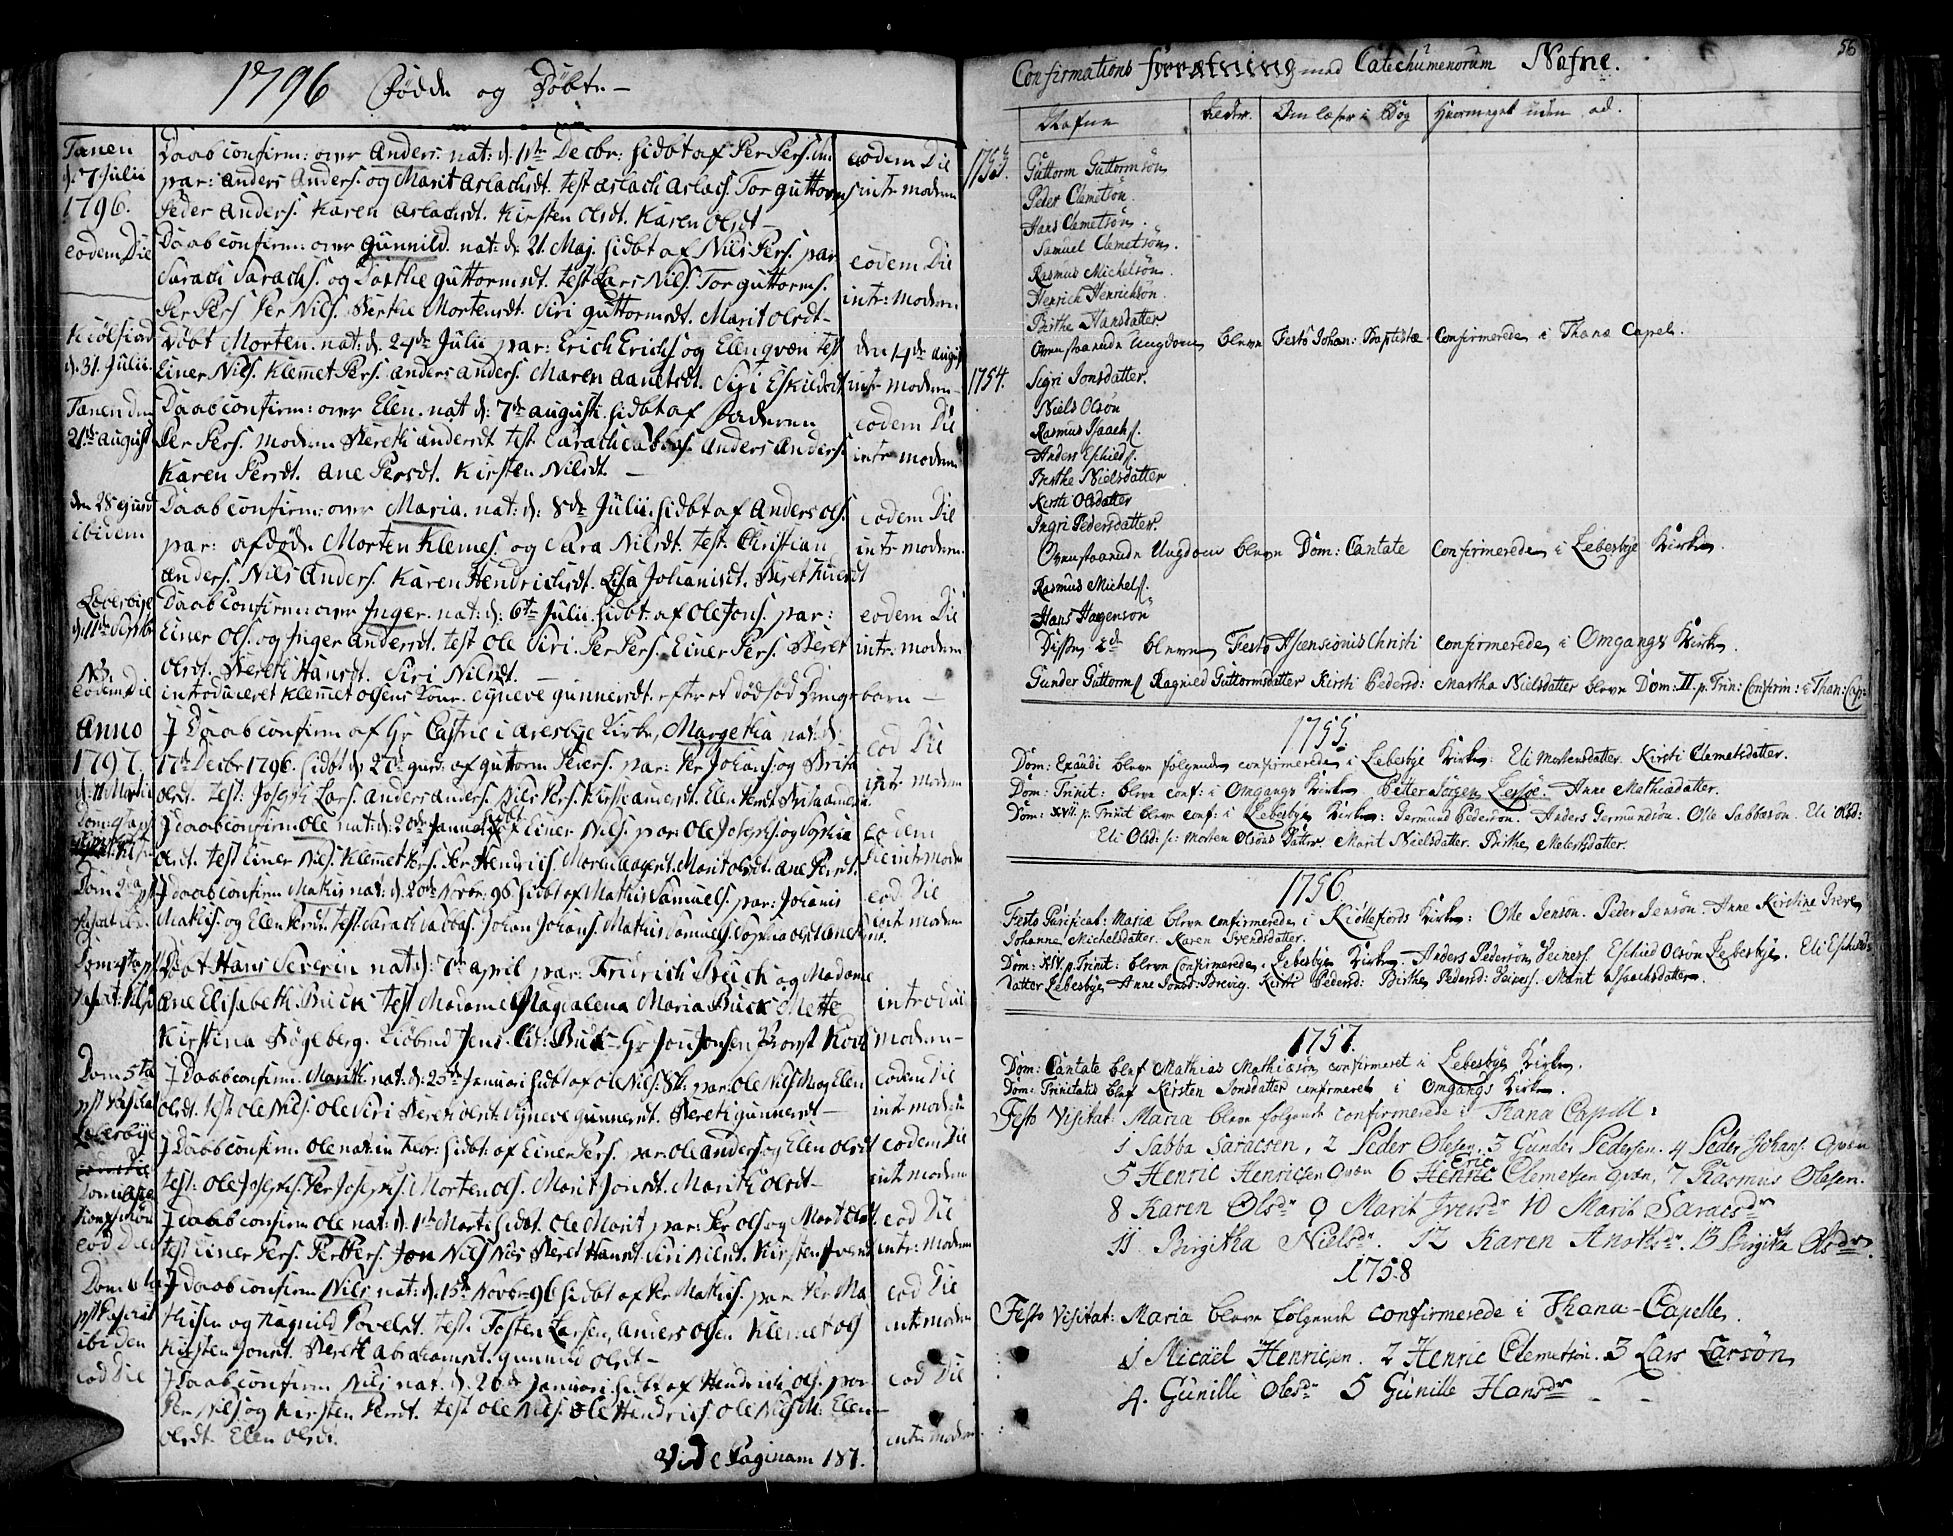 1796 Fødde og Døbte —
Tanen
d: 7 Julii
1796.
Daab confirm: over Anders. nat: d. 11te Decbr: hiðbt af Per Pers.
par: Anders Anders. og Marit Aslachsdt. test Aslach Aslachs. Tor Guttorms
Peder Anders. Karen Aslachsdt. Kirsten Olsdt. Karen Olsdt —
eodem Die
intr: modern
eodem Die
Daab confirm: over Gunnild. nat: d. 21. Maj. hiðbt af Nils Pers. par
Sarach Sarachs. og Dorthe Guttormsdt. test Lars Nils. Tor Guttorms.
Per Pers Per Nils. Berthe Mortensdt. Siri Guttormsdt. Marit Olsdt —
eodem Die
intr: modern
Kiølfiord
d. 31. Julii.
Døbt Morten. nat: d. 24de Julii par: Erich Erichs og Elen Qvæn test
Einer Nils. Klemet Pers. Anders Anders. Maren Aanetsdt. Siri Eskildsdt
den 4de August
intr: modern
Tanen den
21de August
Daab confirm: over Elen. nat d: 7de Augusti. hiðbt af Faderen
Per Pers. modern Berethe Andersdt test Sarach Sabbas. Anders Anders.
Karen Persdt. Ane Persdt. Kirsten Nilsdt. —
eodem Die
intr modern
den 28 ejusd
ibidem
Daab confirm: over Maria. nat: d: 8de Julii. hiðbt af Anders Ols.
par: afdøde Morten Klemes. og Sara Nilsdt. test. Christian
Anders. Nils Anders. Karen Hendrichsdt. Lisa Johanisdt. Beret
eodem Die
intr: modern
Lebesbye
d. 11te Septbr
Daab Confirm: over Inger. nat: d: 6te Julii hiðbt af Ole Jons. par:
Einer Ols. og Inger Andersdt. test Ole Siri. Per Pers. Einer Pers. Beret
Olsdt. Berethe Hansdt. Siri Nilsdt. —
eodem Die
intr: modern
NB
eodem Die
introduceret Klemet Olsens Kone. Signeve Gunnersdt. efter et dødfød Drenge barn —
Anno
1797.
J Daab confirm af Hr Castrie i Aresbye Kirke, Margetha nat: d:
17de Decbr 1796. hiðbt d. 27de ejusd: af Guttorm Peders. par: Per Johans. og Brita
Olsdt. test: Joseph Lars. Anders Anders. Nils Pers. Kirsti Andersdt. Elen Persdt.
eod Die
intr modern
J daab confirm. Ole nat: d: 20de Januar hiðbt af Einer Nils. par: Ole Josephs. og Sophia
Olsdt. test Einer Nils. Klemet Pers. Per Hendrichs. Marit Olsdt. Ane Persdt.
eodem
Die intr: modern
Dom 2da pst
J daab confirm Mathis nat: d: 20de Novbr: 96 hiðbt af Mathis Samuels. par: Johanis
Mathis. og Elen Persdt. test: Sarach Sabbas. Johan Johans. Mathis Samuels. Sophia Olsdt
eod Die
intr modern
Døbt Hans Severin nat: d: 7de April par: Fridrich Buch og Madame
Ane Elisabeth Buck test Madame Magdalena Maria Buck Mette
Kirstina Bøgeberg. Kiøbmd Jens Buck Hr Jon Jonsen Provst Kock
introdu:
modern —
Dom 5ta
pst Pascha
Lebesbye
J Daab confirm. Marith nat: d. 25de Januari hiðbt af Ole Nils. par: Ole Nils M. og Elen
Olsdt. test Ole Nils. Ole Siri Bereth Olsdt. Signeve Gunnersdt. Bereth Gunnersdt —
eodem Die
intr modern
J Daab confirm. Ole nat: in Febr: hiðbt: af Einer Pers. par: Ole Anders. og Elen Olsdt
test. Ole Josephs. Per Josephs. Morten Ols. Marit Jonsdt. Marith Olsdt —
eodem Die
intr modern
eod Die
J daab confirm Ole nat: d. 1te Marti hiðbt. Ole Marit par: Per Ols. og Marit Olsdt.
test Einer Pers. Per Pers. Jon Nils Beret Hansdt. Siri Nilsdt. Kirsten
eod Die
intr: modern
ibidem
J daab confirm Nils nat: d: 15de Novbr 96 hiðbt af Per Mathis. par: Per Ma
thisen og Ragnild Povelsdt. test. Tosten Larsen, Anders Olsen Klemet Ols
Kirsten Jonsdt. Bereth Abrahamsdt. Gunnild Olsdt —
eod Die
intr: modern
eod Die
J Daab confirm Nils nat. d. 20de Januari hiðbt af Hendrich Ols. par
Per Nils. og Kirsten Persdt. test Ole Nils. Ole Hendrichs. Ole Nils M: Elen
Olsdt Elen Olsdt.
eod Die
intr: modern
Vide Paginam 187.
56
Confirmations forretning med Catechumenorum Nafne.
Nafne
Alder.
Om læser i Bog
Hvormeget uden ad.
1753.
Guttorm Guttormsøn
Peder Clemetsøn.
Hans Clemetsøn.
Samuel Clemetsøn.
Rasmus Michelsøn.
Henrich Henrichsøn.
Birthe Hansdatter
Ovenstaaende Ungdom bleve Festo Johan: Baptistæ Confirmerede i Thana Capel.
1754.
Sigri Jonsdatter.
Niels Olsøn
Rasmus Isaachs.
Anders Eschilds.
Birthe Nielsdatter
Kirsti Olsdatter
Ingri Pedersdatter.
Ovenstaaende Ungdom bleve Dom: Cantate Confirmerede i Lebesbye Kirke.
Rasmus Michels.
Hans Haagensøn
Disse 2de bleve Festo Ascensionis Christi confirmerede i Omgangs Kirke.
Gunder Guttorms Ragnild Guttormsdatter Kirsti Pedersd: Martha Nielsdatter bleve Dom: II. p. Trin: Confirm: i Than: Cap:
1755.
Dom: Exaudi bleve følgende confirmerede i Lebesbye Kirke: Eli Mortensdatter. Kirsti Clemetsdatter.
Dom: Trinit: bleve conf: i Omgangs Kirke Petter Jørgen Lesøe. Anne Mathiædatter.
Dom: XVII. p. Trinit bleve conf: i Lebesbye Kirke: Germund Pedersøn. Anders Germundsøn. Olle Sabbasøn. Eli Olsd:
Eli Olsd: s: Morten Olsøns Datter. Marit Nielsdatter. Birthe Melertsdatter.
1756.
Festo Purificat: Mariæ bleve confirmerede i Kiøllefiords Kirke: Olle Jensøn. Peder Jensøn. Anne Kirstine
Johanne Michelsdatter. Karen Svendsdatter.
Dom: XIV. p. Trinit: bleve Confirmerede i Lebesbye Kirke Anders Pedersøn Veines. Eschild Olsøn Lebesbye. Eli Eschilds
datter Lebesbye Anne Jonsd: Brevig. Kirsti Pedersd: Birthe Pedersd: Veines. Marit Isaachsdatter.
1757.
Dom: Cantate blef Mathias Mathiasøn confirmeret i Lebesbye Kirke.
Dom: Trinitatis blef Kirsten Jonsdatter confirmeret i Omgangs Kirke.
Festo Visitat: Maria bleve følgende confirmerede i Thana Capell:
1 Sabba Saracsen, 2 Peder Olesen, 3 Gunder Pedersen. 4 Peder Johans. Qvæn
5 Henric Henricsen Qvæn 6 Henric Eric Clemetsen Qvæn, 7 Rasmus Olesen.
8 Karen Olsdr 9 Marit Iversdr 10 Marit Saracsdr
11 Birgitha Nielsdr. 12 Karen Andersdr. 13 Birgitha Olsdr.
1758
Festo Visitat: Maria bleve følgende confirmerede i Thana-Capelle.
1 Micaël Henricsen. 2 Henric Clemetsøn. 3 Lars Larsøn
4. Gunille Olesdr 5 Gunille Hansdr — —